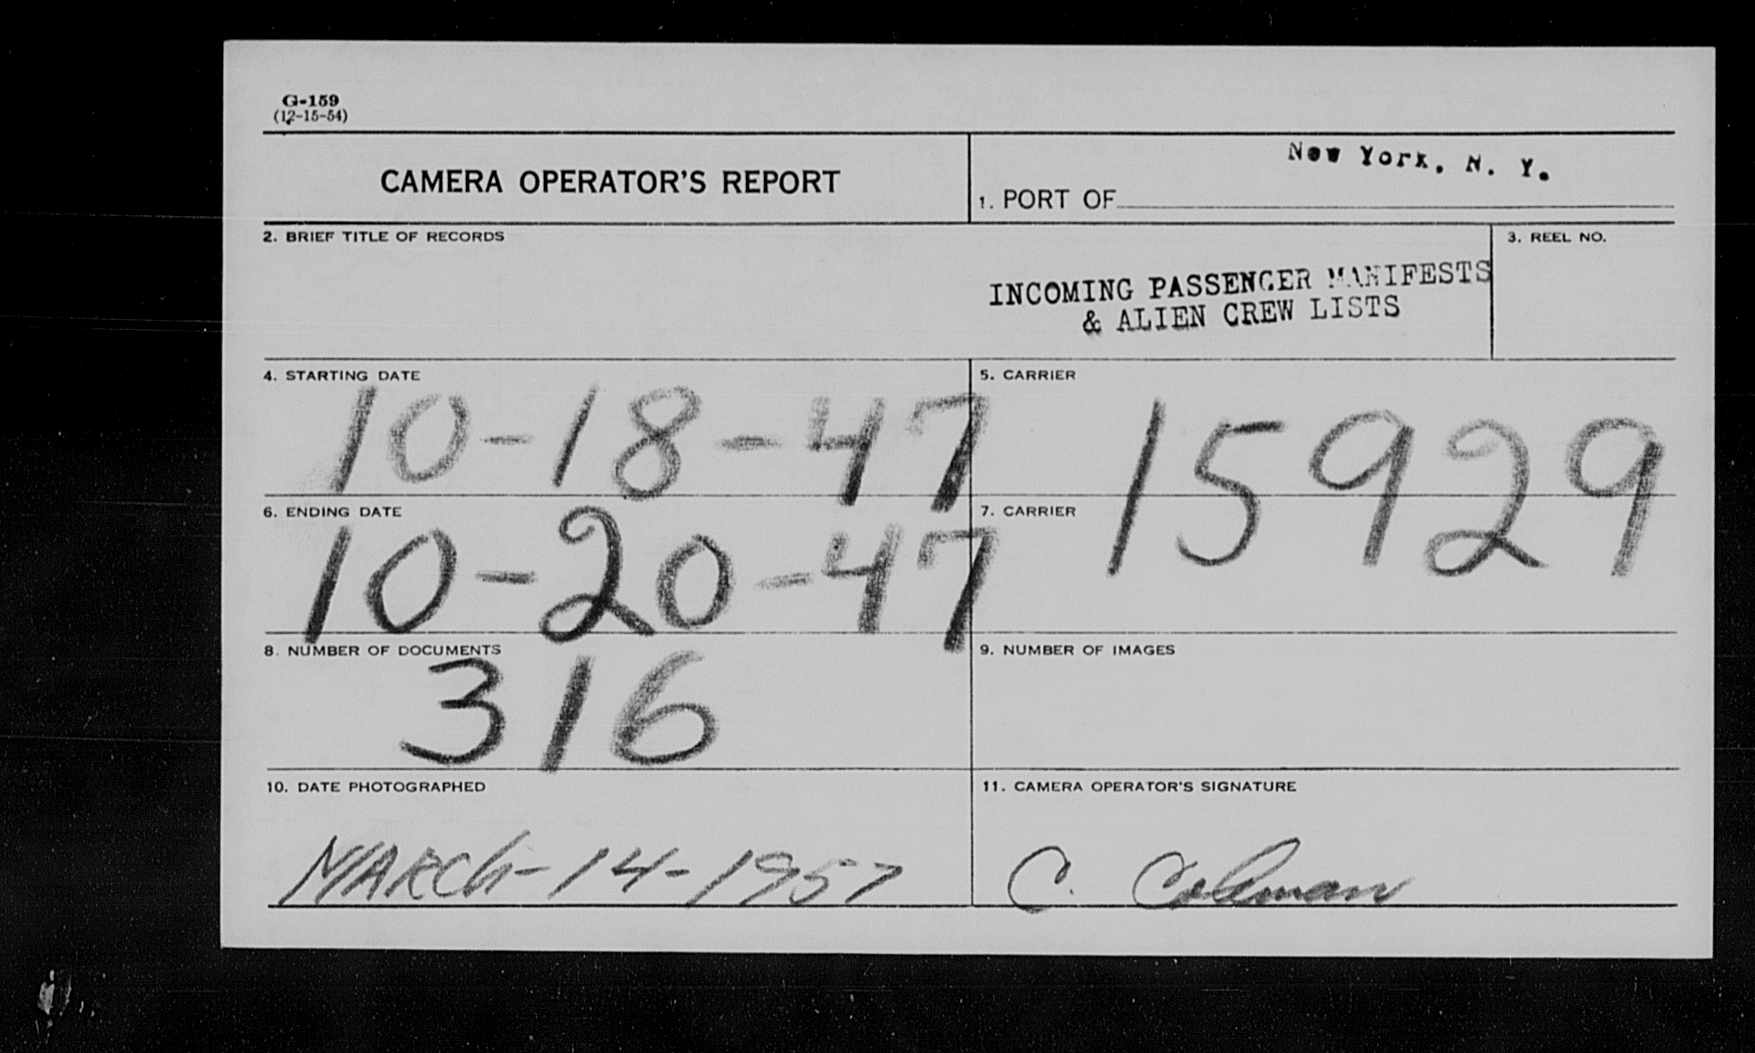 G-159
(12-15-54)
CAMERA OPERATOR'S REPORT
1. PORT OF New York, N. Y.
2. BRIEF TITLE OF RECORDS
INCOMING PASSENGER MANIFESTS
& ALIEN CREW LISTS
3. REEL NO.
4. STARTING DATE
10-18-47
5. CARRIER
15929
6. ENDING DATE
10-20-47
7. CARRIER
8. NUMBER OF DOCUMENTS
316
9. NUMBER OF IMAGES
10. DATE PHOTOGRAPHED
MARCh-14-1957
11. CAMERA OPERATOR'S SIGNATURE
C. Coleman